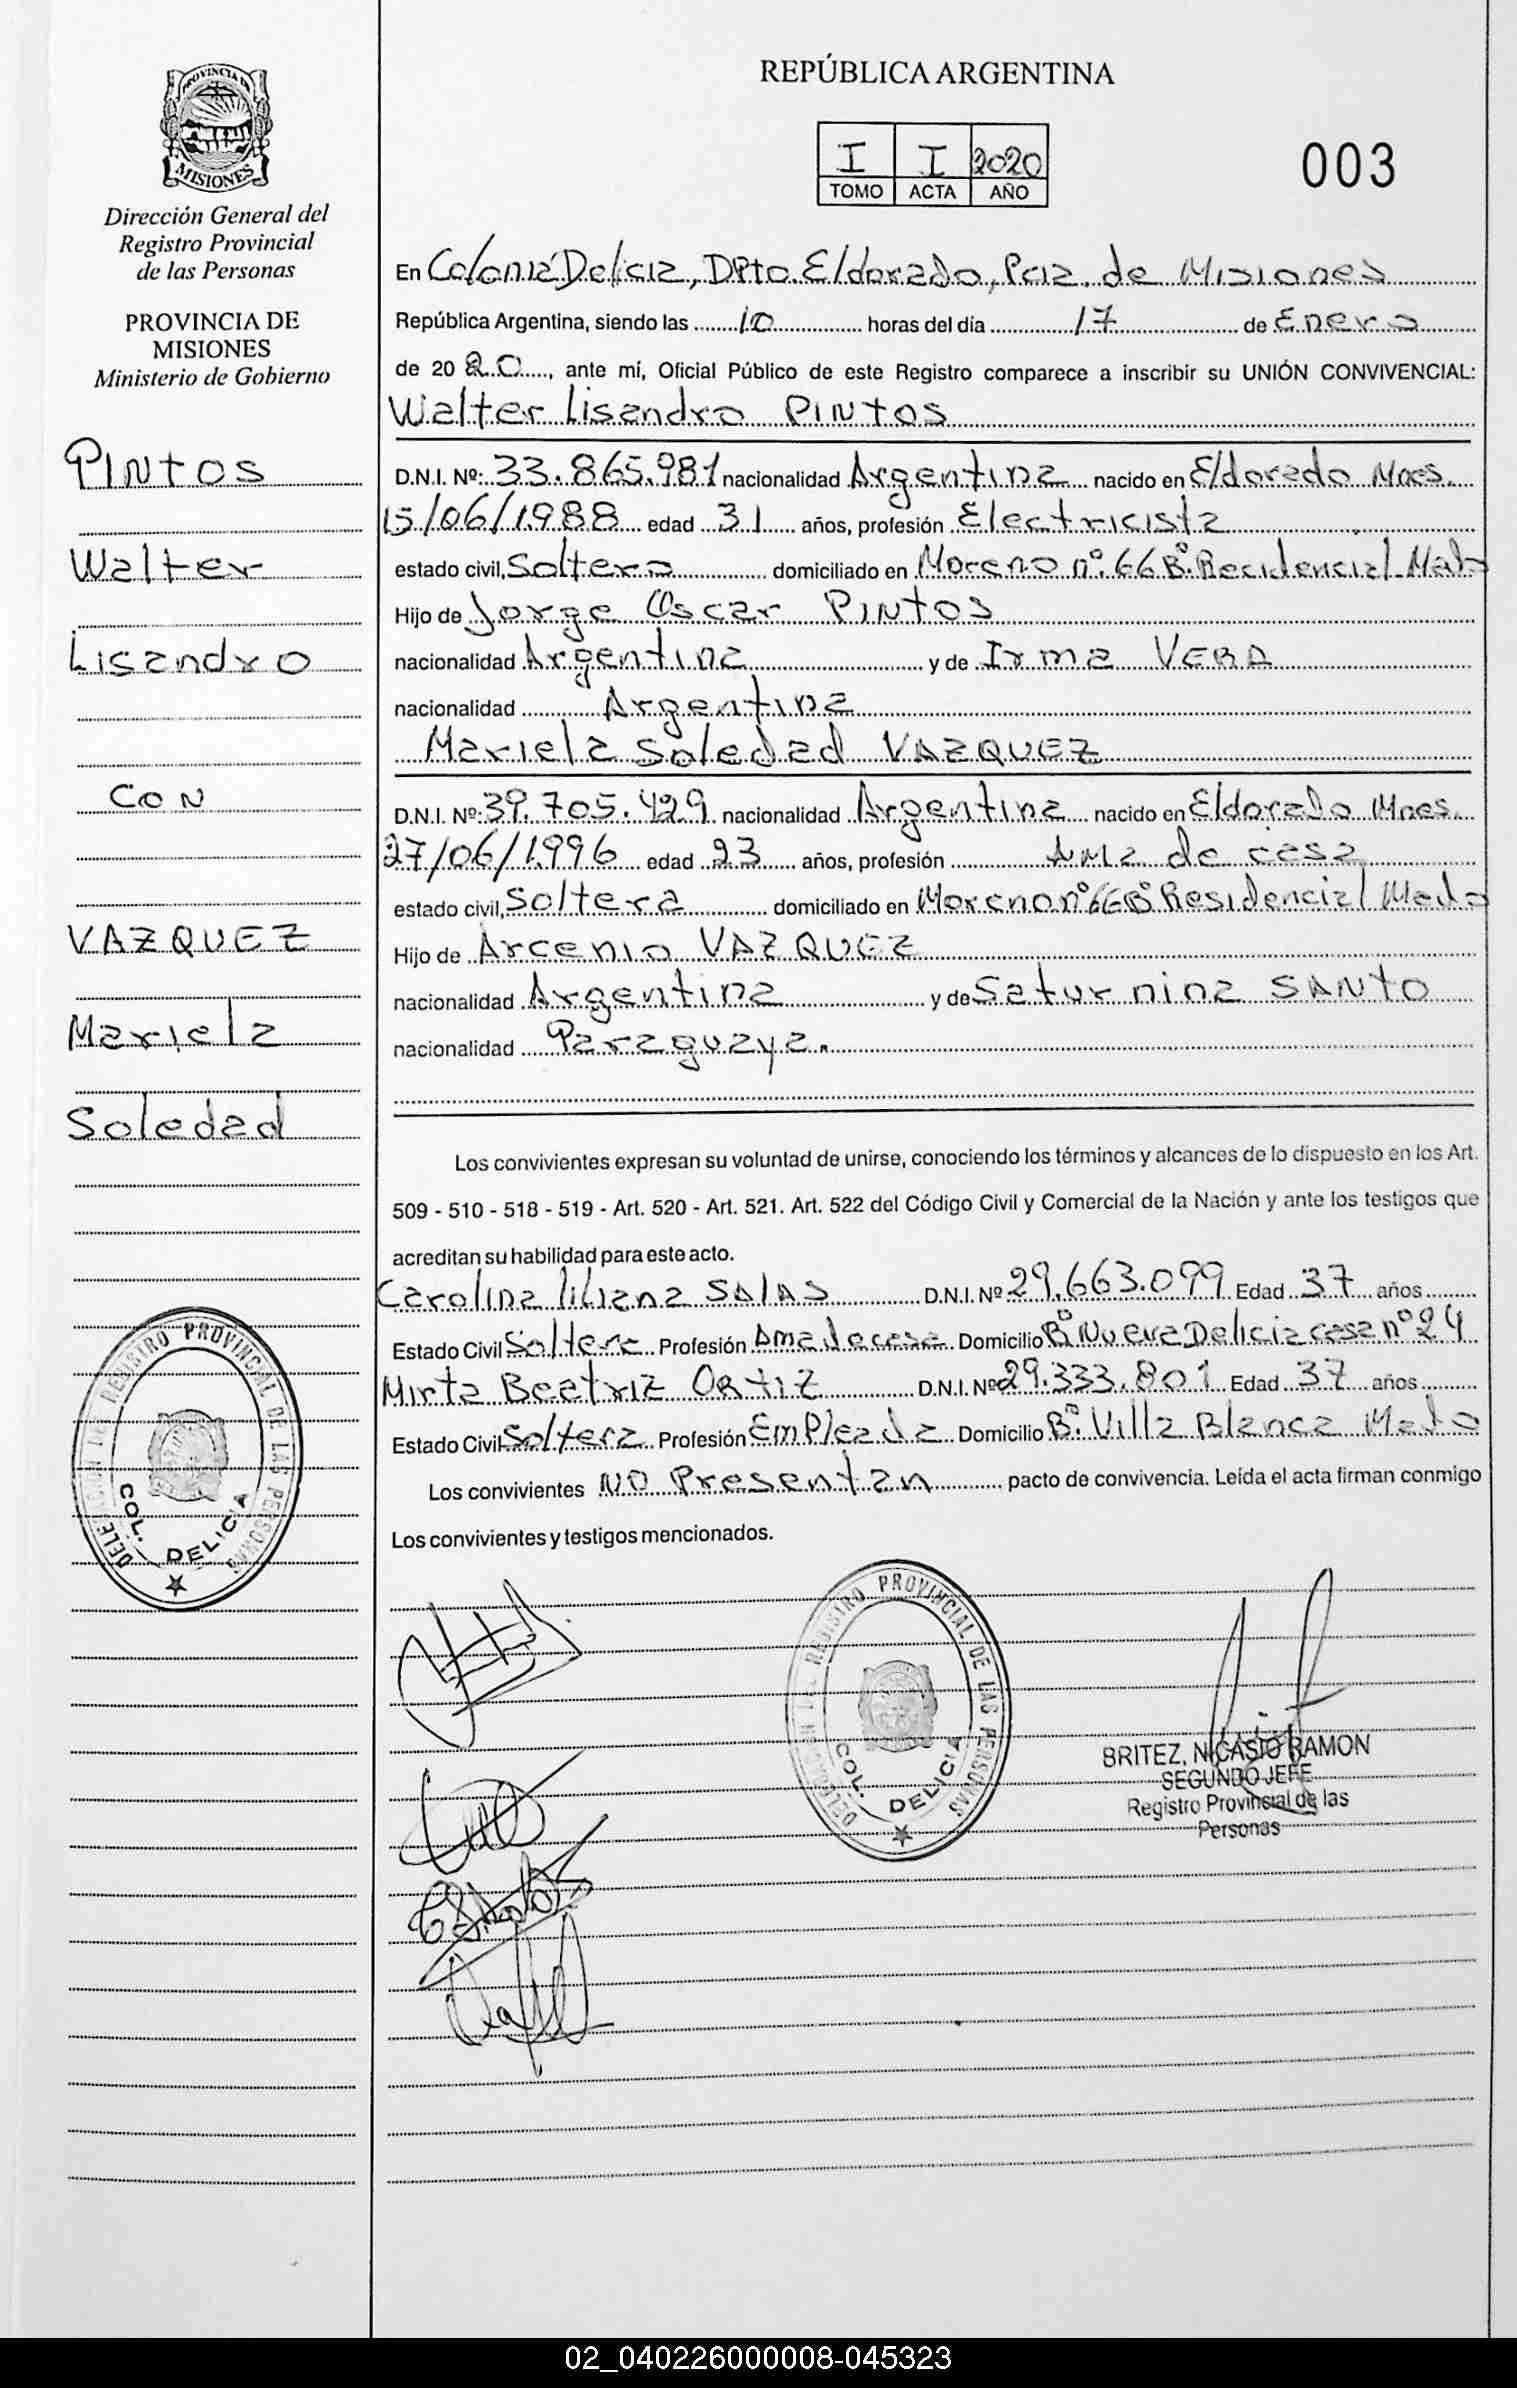 PROVINCIA DE
MISIONES
Dirección General del
Registro Provincial
de las Personas
PROVINCIA DE
MISIONES
Ministerio de Gobierno
PINTOS
Walter
Lisandro
CON
VAZQUEZ
Mariela
Soledad
DELEGACION DEL REGISTRO PROVINCIAL DE LAS PERSONAS
COL. DELICIA
REPÚBLICA ARGENTINA
I I 2020
TOMO ACTA AÑO
003
En Colonia Delicia, DPto. Eldorado, Pcia. de Misiones
República Argentina, siendo las 10 horas del día 17 de Enero
de 20 20, ante mí, Oficial Público de este Registro comparece a inscribir su UNIÓN CONVIVENCIAL:
Walter Lisandro PINTOS
D.N.I. Nº: 33.865.981 nacionalidad Argentina nacido en Eldorado Mnes.
15/06/1988 edad 31 años, profesión Electricista
estado civil, Soltero domiciliado en Moreno nº 66 Bº Recidencial Mado
Hijo de Jorge Oscar PINTOS
nacionalidad Argentina y de Irma VERA
nacionalidad Argentina
Mariela Soledad VAZQUEZ
D.N.I. Nº: 39.705.429 nacionalidad Argentina nacido en Eldorado Mnes.
27/06/1996 edad 23 años, profesión Ama de casa
estado civil, Soltera domiciliado en Moreno nº 66 Bº Residencial Mado
Hijo de Arcenio VAZQUEZ
nacionalidad Argentina y de Saturnina SANTO
nacionalidad Paraguaya.
Los convivientes expresan su voluntad de unirse, conociendo los términos y alcances de lo dispuesto en los Art.
509 - 510 - 518 - 519 - Art. 520 - Art. 521. Art. 522 del Código Civil y Comercial de la Nación y ante los testigos que
acreditan su habilidad para este acto.
Carolina liliana SALAS D.N.I. Nº 29.663.099 Edad 37 años
Estado Civil Soltera Profesión Ama de casa Domicilio Bº Nueva Delicia casa nº 24
Mirta Beatriz ORTIZ D.N.I. Nº 29.333.801 Edad 37 años
Estado Civil Soltera Profesión EmPleada Domicilio Bº Villa Blanca Mado
Los convivientes NO Presentan pacto de convivencia. Leída el acta firman conmigo
Los convivientes y testigos mencionados.
DELEGACION DEL REGISTRO PROVINCIAL DE LAS PERSONAS
COL. DELICIA
BRITEZ, NICASIO RAMON
SEGUNDO JEFE
Registro Provincial de las
Personas
02_040226000008-045323